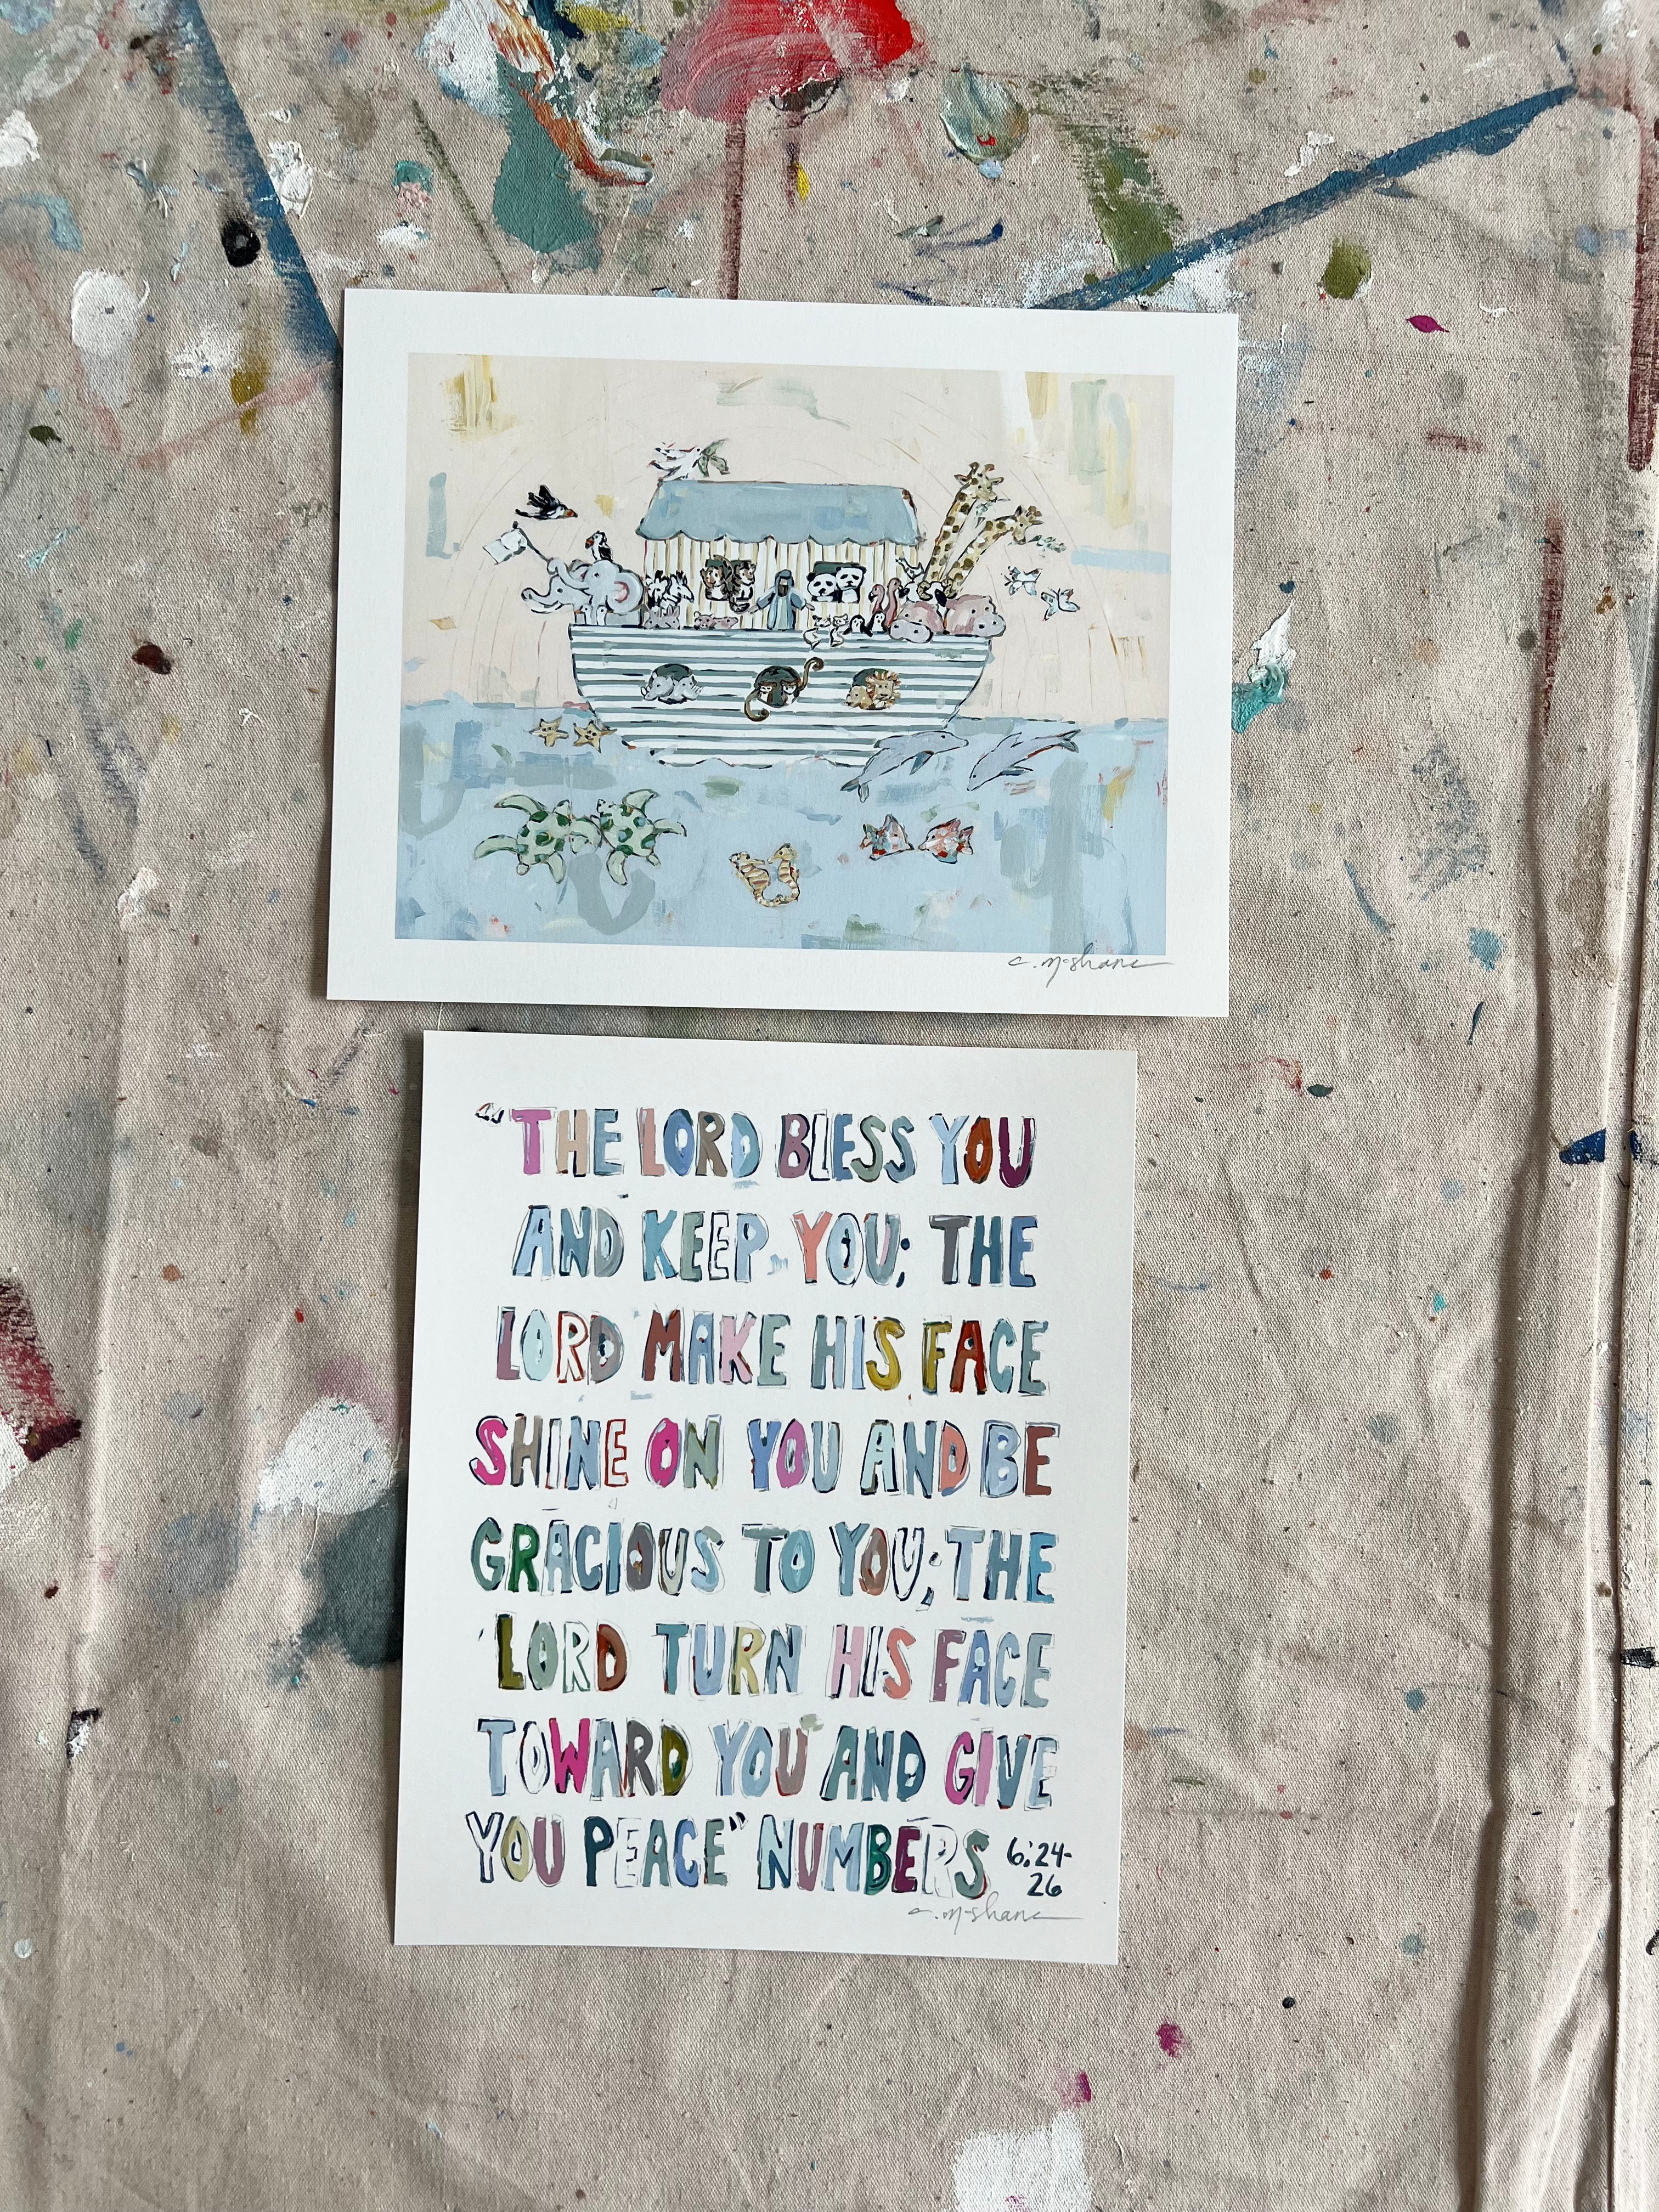 c. mcshane
"THE LORD BLESS YOU
AND KEEP YOU; THE
LORD MAKE HIS FACE
SHINE ON YOU AND BE
GRACIOUS TO YOU; THE
LORD TURN HIS FACE
TOWARD YOU AND GIVE
YOU PEACE" NUMBERS 6:24-
26
c. mcshane